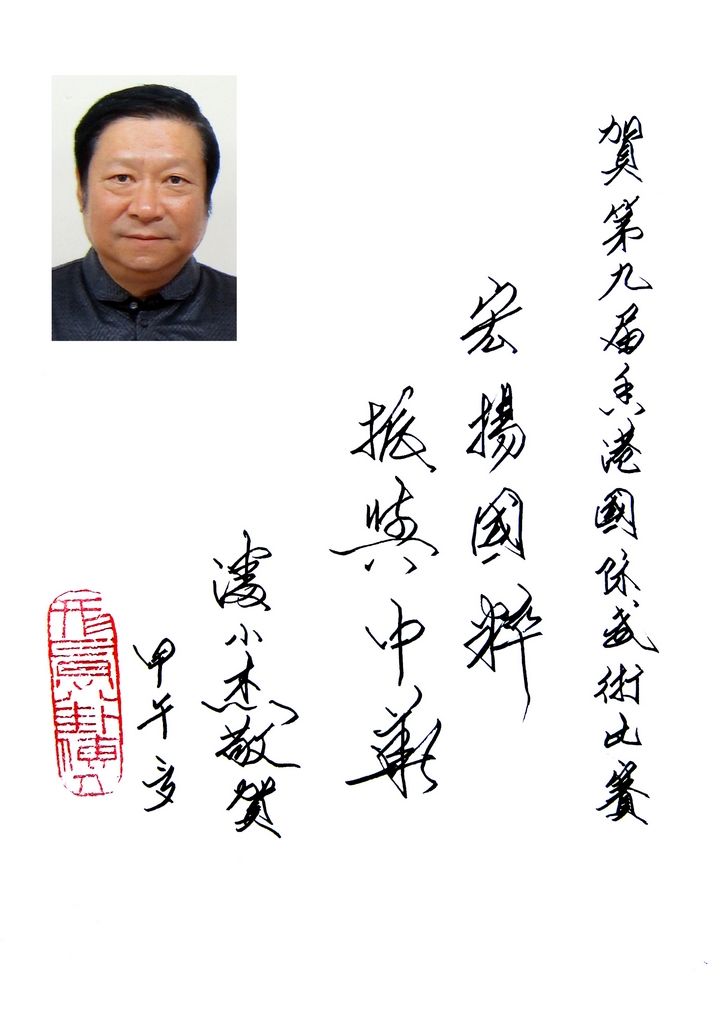 賀第九届香港國际武術比賽
宏揚國粹
振興中華
小杰敬賀
甲午
形意